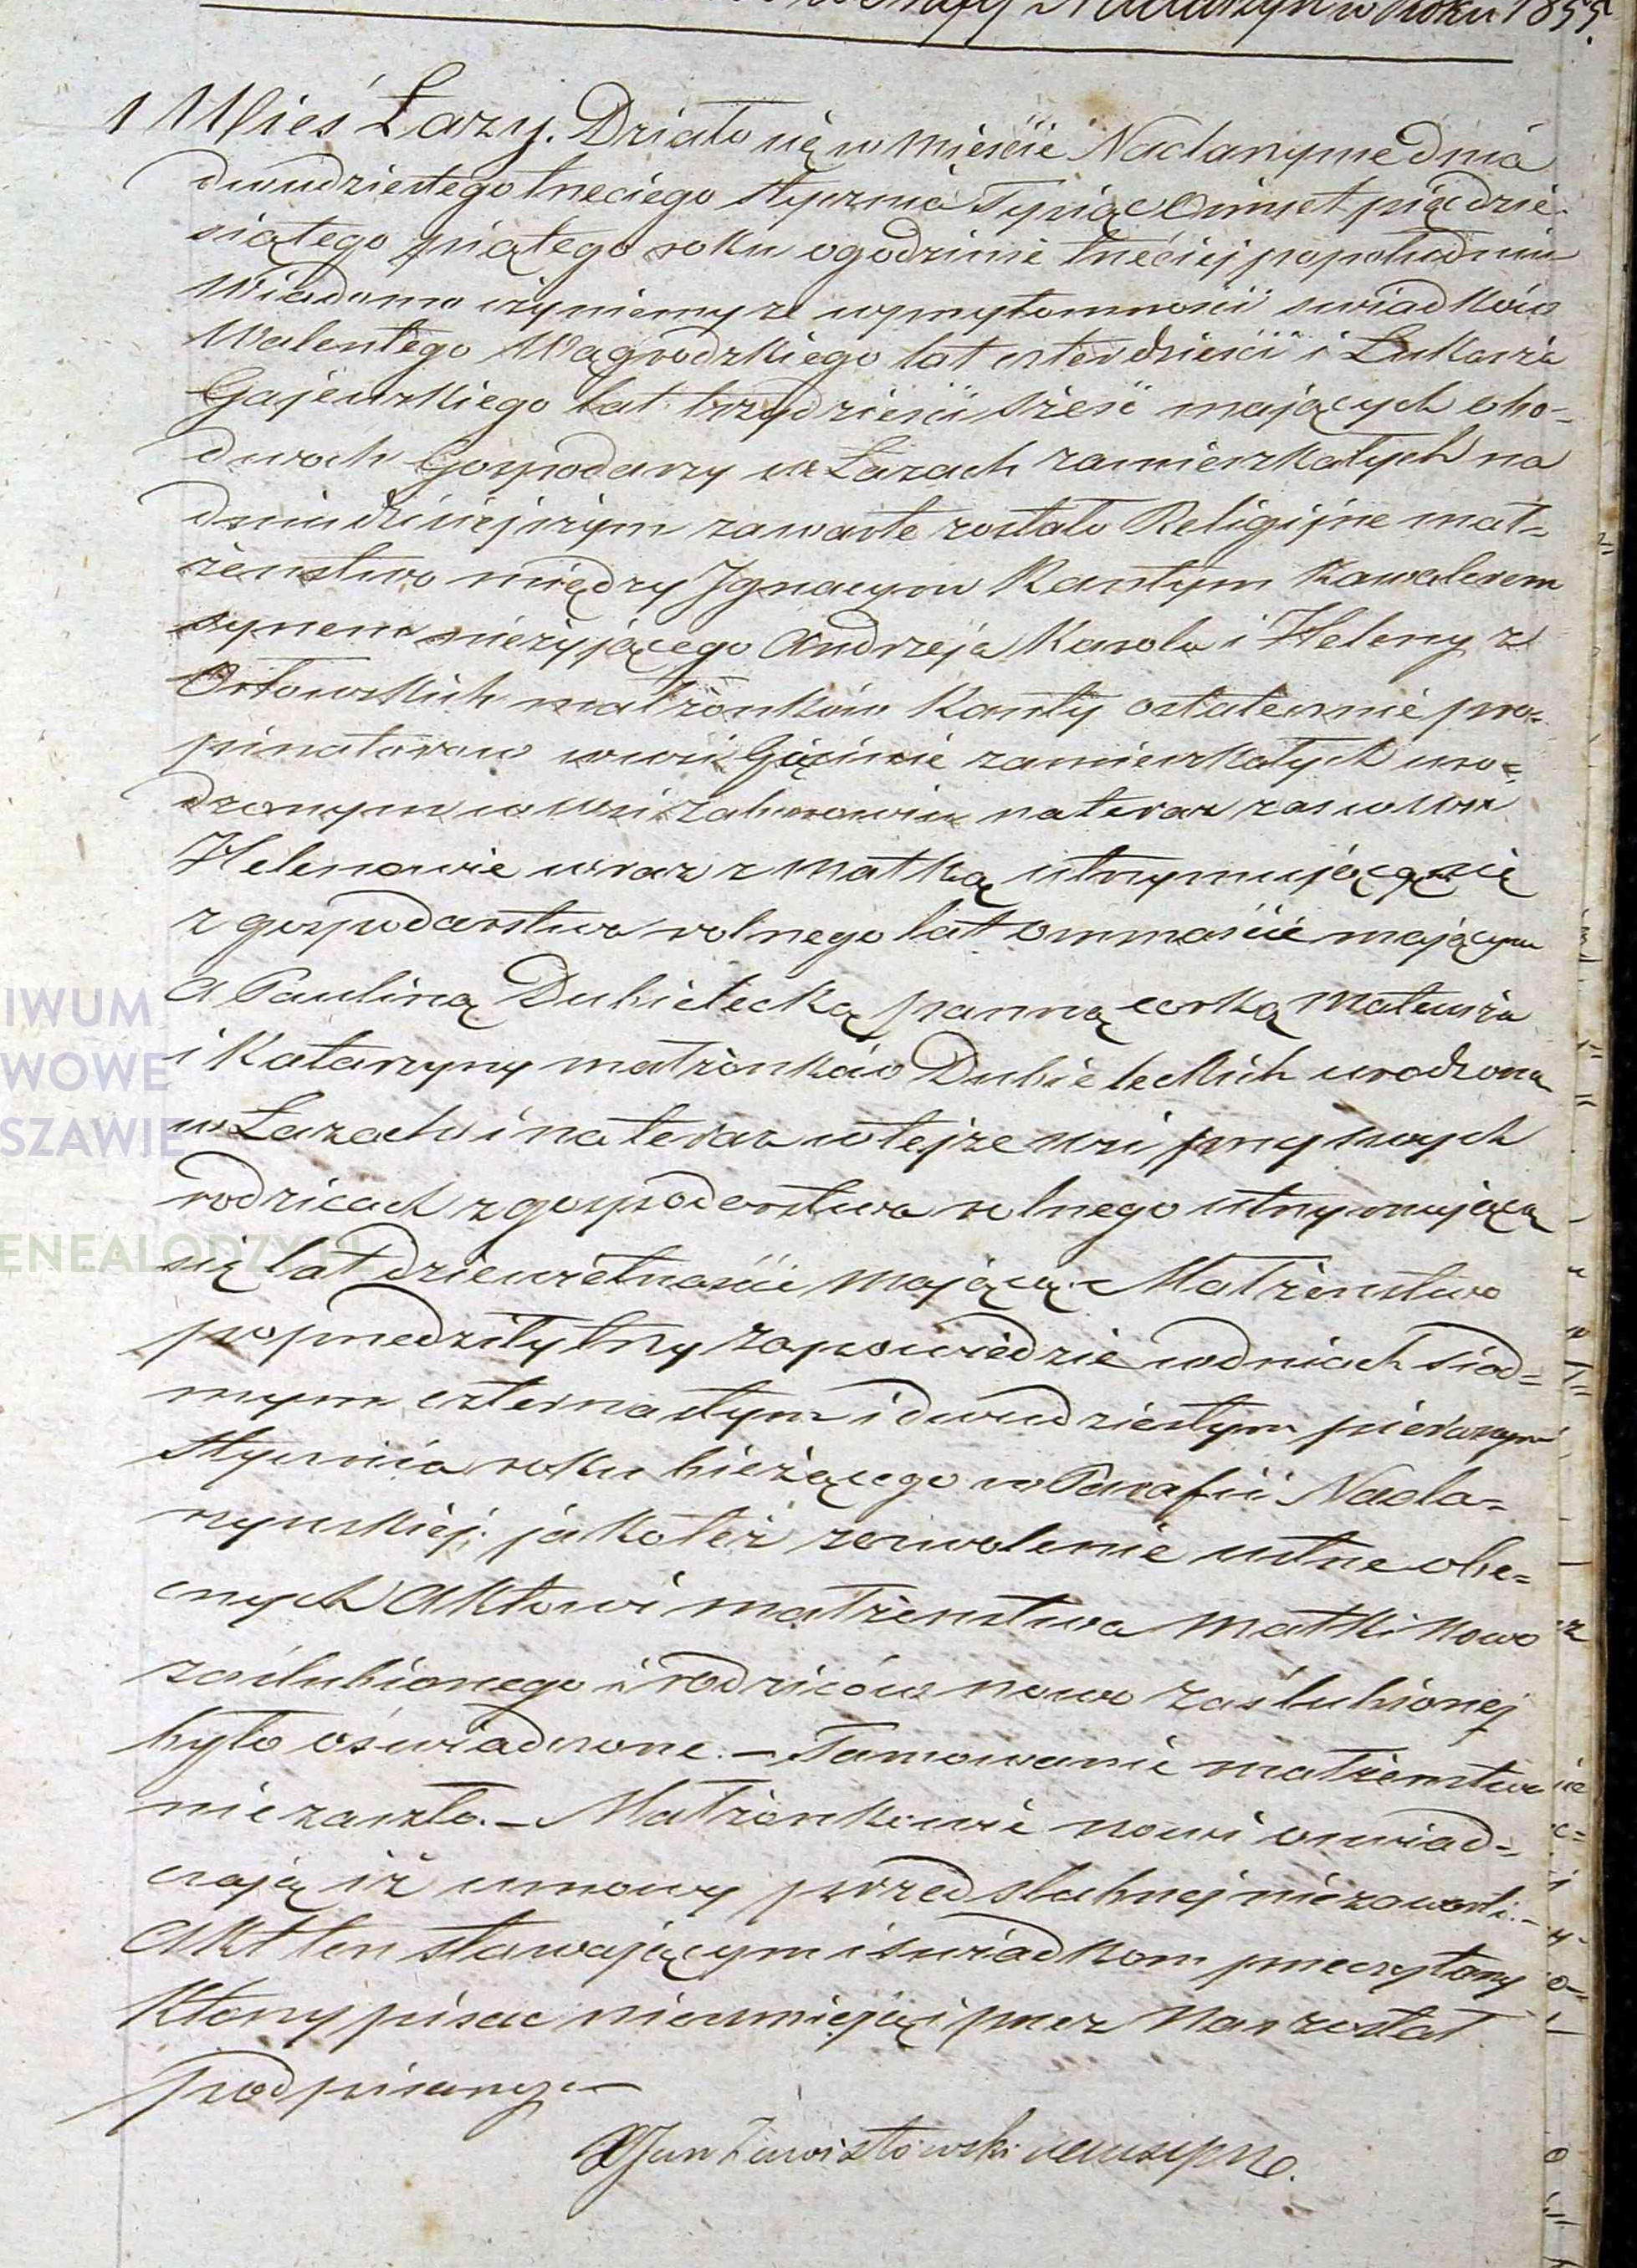 Nadarzyn w Roku 1855.
1 Wieś Łazy. Działo się w Mieście Nadarzynie dnia
dwudziestego trzeciego Stycznia Tysiąc Ośmset pięćdzie-
siątego piątego roku o godzinie trzeciej po południu
Wiadomo czyniemy że w przytomności swiadków
Walentego Wągrodzkiego lat czterdzieści i Łukasza
Gajewskiego lat trzydzieści sześć mających obo-
dwóch Gospodarzy w Łazach zamieszkałych na
dniu dzisiejszym zawarte zostało Religijne mał-
żeństwo między Ignacym Kantym Kawalerem
synem nieżyjącego Andrzeja Karola i Heleny z
Orłowskich małżonków Kanty ostatecznie pro-
pinatorow w wsi zamieszkałych uro-
dzonym w wsi na teraz zas w wsi
Helenowie wraz z Matką utrzymującą się
z gospodarstwa rolnego lat ośmnaście mającym
a Pauliną Dubielecką panną corką Mateusza
i Katarzyny małżonków Dubieleckich urodzoną
w Łazach i na teraz w tejże wsi przy swych
rodzicach z gospodarstwa rolnego utrzymującą
się lat dziewiętnaście mającą. Małżeństwo
poprzedziły trzy zapowiedzie w dniach siod=
mym czternastym i dwudziestym pierwszym
Stycznia roku bieżącego w Parafii Nada=
rzyńskiej; jako też zezwolenie ustne obe=
cnych Aktowi małżeństwa Matki nowo
zaślubionego i rodziców nowo zaślubionej
było oświadczone. – Tamowanie małżeństwa
nie zaszło. – Małżonkowie nowi oswiad=
czają iż umowy przedslubnej niezawarli. –
Akt ten stawającym i swiadkom przeczytany
Który pisac nieumieją i przez Nas został
podpisany. –
XJan Zawistowski
IWUM
WOWE
SZAWIE
ENEALODZY.PL